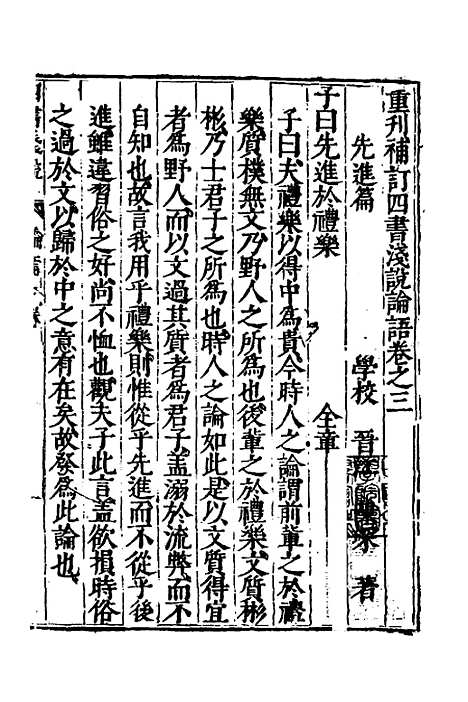 重刊補訂四書淺說論語卷之三
先進篇 學校 晉 著
子曰先進於禮樂 全章
子曰夫禮樂以得中爲貴今時人之論謂前輩之於禮
樂質樸無文乃野人之所爲也後輩之於禮樂文質彬
彬乃士君子之所爲也時人之論如此是以文質得宜
者爲野人而以文過其質者爲君子盖溺於流弊而不
自知也故言我用乎禮樂則惟從乎先進而不從乎後
進雖違習俗之好尚不恤也觀夫子此言盖欲損時俗
之過於文以歸於中之意有在矣故發爲此論也